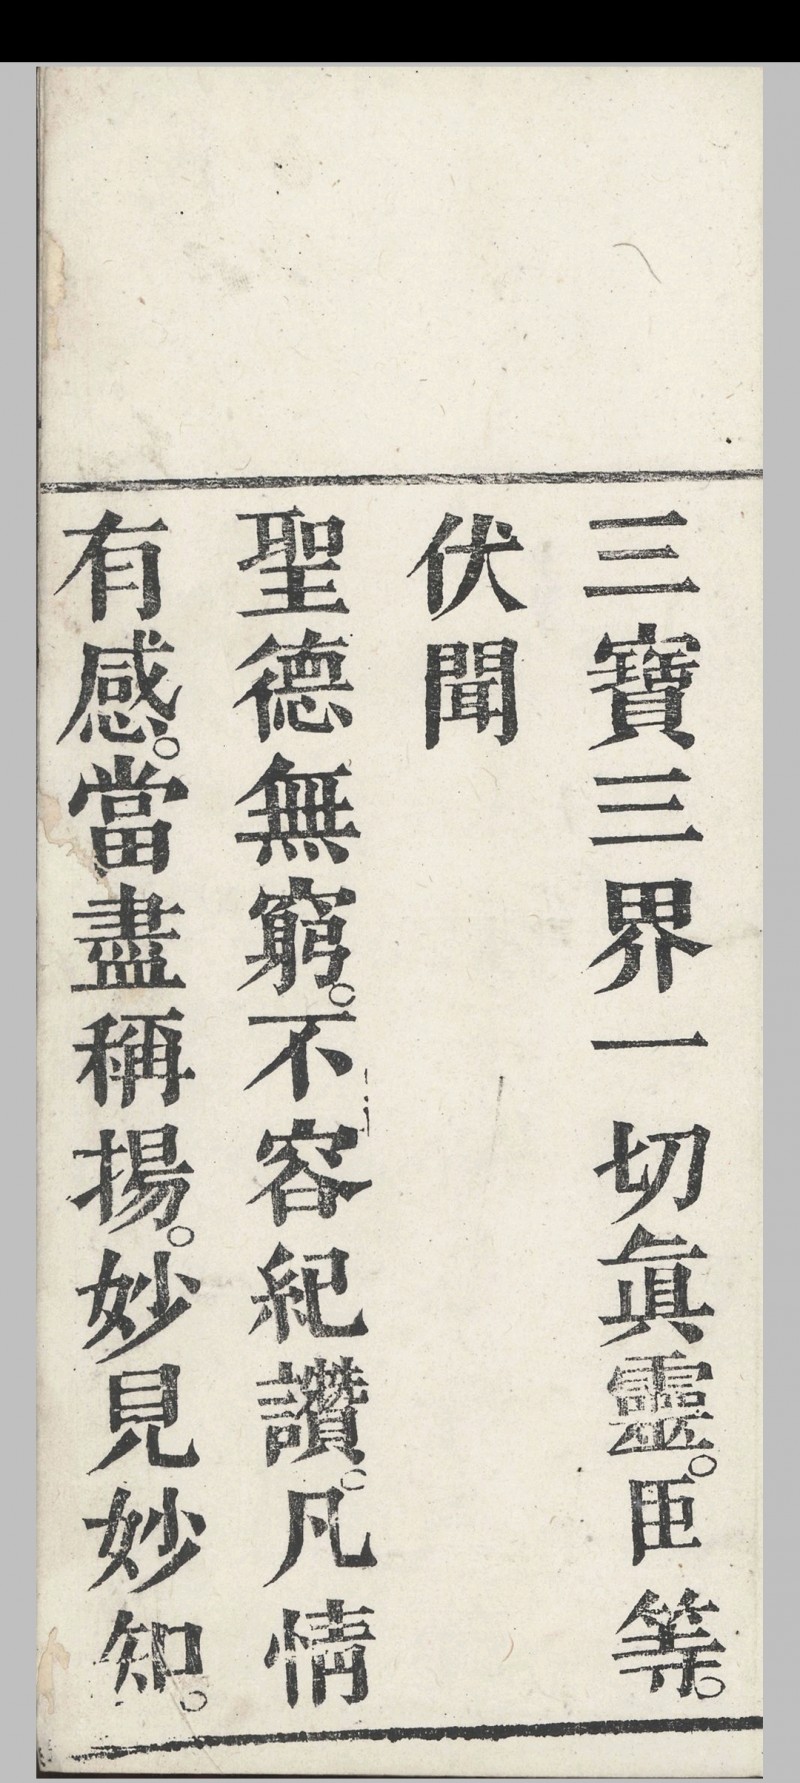 三寶三界一切眞靈。臣等。
伏聞
聖德無窮。不容紀讚。凡情
有感。當盡稱揚。妙見妙知。